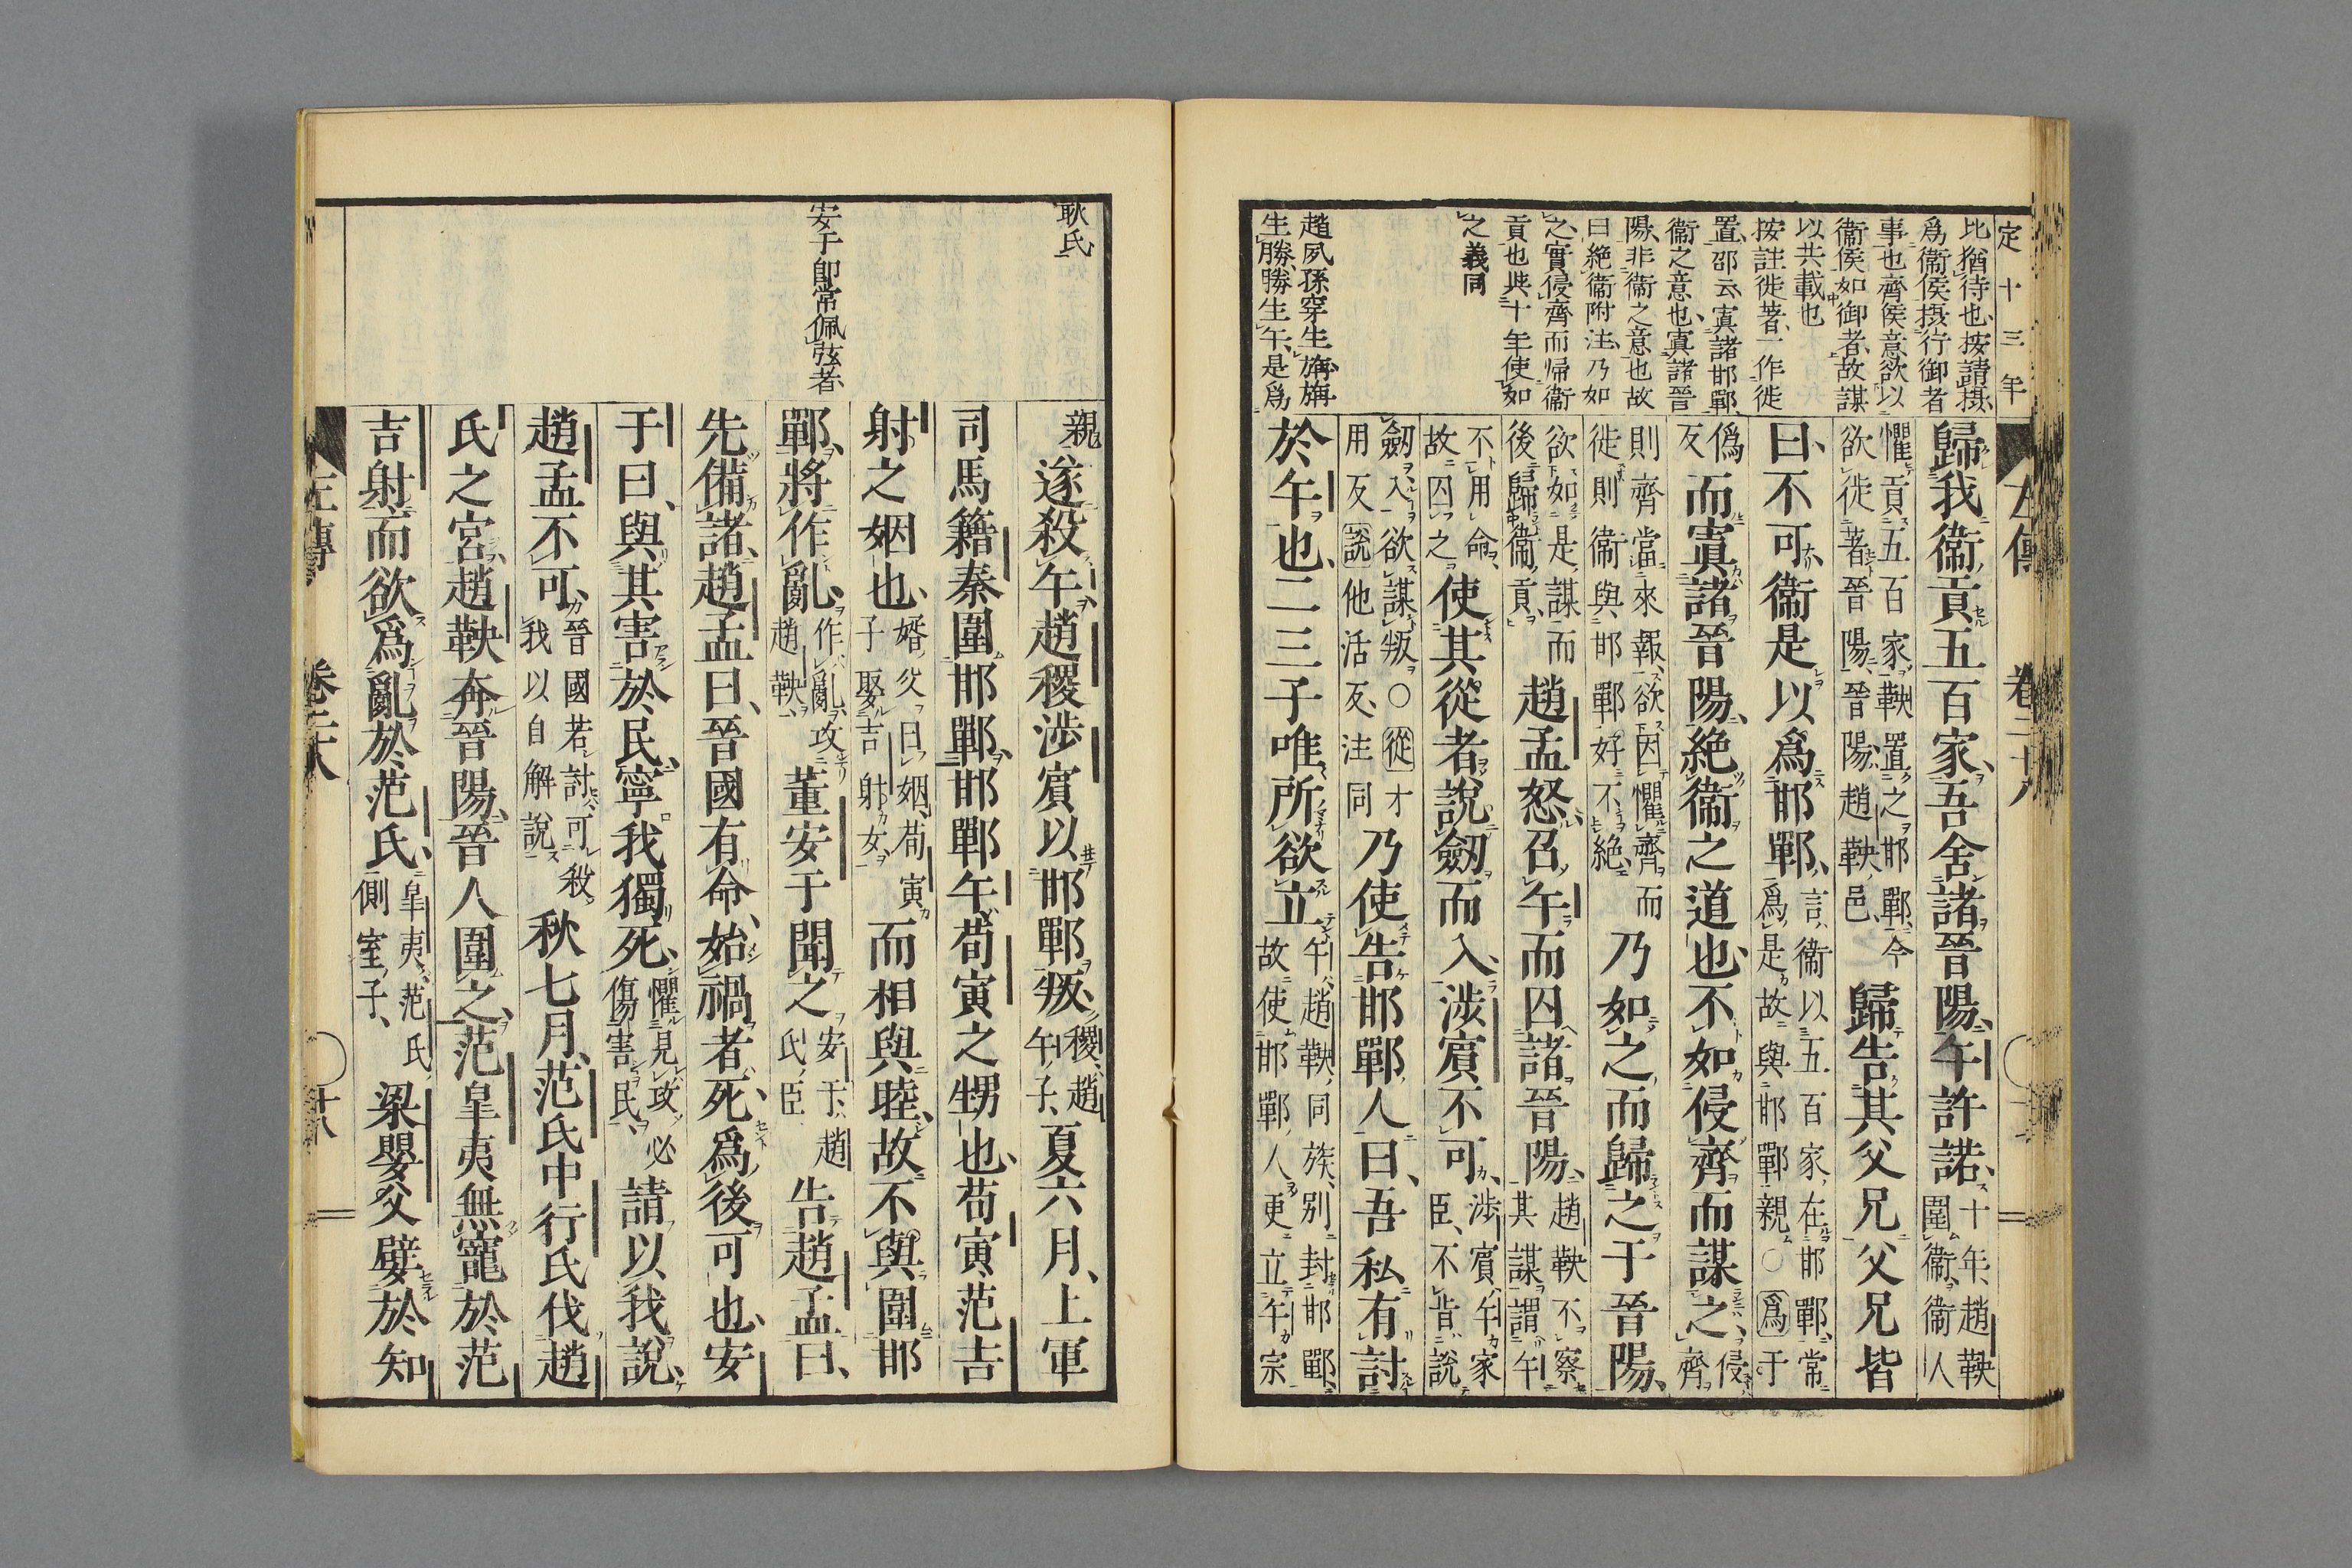 定十三年
比猶待也按請摂
爲衞侯摂行御者
事也齊侯意欲以
衞侯如御者故謀
以共載也
按註徙著一作徙
置邵云寘諸邯鄲
衞之意也寘諸晉
陽非衞之意也故
曰絶衞附注乃如
之實侵齊而歸衞
貢也與十年使如
之義同
趙夙孫穿生旃旃
生勝勝生午是爲
左傳 卷二十八
歸我衞貢五百家、吾舍諸晉陽、午許諾、十年、趙鞅圍衞、衞人
懼貢五百家、鞅置之邯鄲、今欲徙著晉陽、晉陽趙鞅邑、歸告其父兄、父兄皆
曰、不可、衞是以爲邯鄲、言衞以五百家、在邯鄲、常爲是故、與邯鄲親〇爲于
僞反而寘諸晉陽、絶衞之道也、不如侵齊而謀之、侵齊
則齊當來報、欲因懼齊而徙則衞與邯鄲好不絶、乃如之、而歸之于晉陽、
欲如是謀而後歸衞貢、趙孟怒、召午而囚諸晉陽、趙鞅不察其謀、謂午
不用命、故囚之、使其從者說劒而入、涉賓不可、涉賓、午家臣、不肯說
劒入、欲謀叛〇從才用反說他活反、注同乃使告邯鄲人曰、吾私有討
於午也、二三子唯所欲立、午、趙鞅同族、別封邯鄲、故使邯鄲人更立午宗
耿氏
安于即常佩弦者
親、遂殺午、趙稷涉賓以邯鄲叛、稷、趙午子、夏六月、上軍
司馬籍秦圍邯鄲、邯鄲午、荀寅之甥也、荀寅、范吉
射之姻也、婿父曰姻、荀寅子娶吉射女、而相與睦、故不與圍邯
鄲、將作亂、作亂攻趙鞅、董安于聞之、安于、趙氏臣、告趙孟曰、
先備諸、趙孟曰、晉國有命、始禍者死、爲後可也、安
于曰、與其害於民、寧我獨死、懼見攻、必傷害民、請以我說、
趙孟不可、晉國若討、可殺我以自解說、秋七月、范氏中行氏伐趙
氏之宮、趙鞅奔晉陽、晉人圍之、范皐夷無寵於范
吉射、而欲爲亂於范氏、皐夷、范氏側室子、梁嬰父嬖於知
左傳 卷二十八 十八